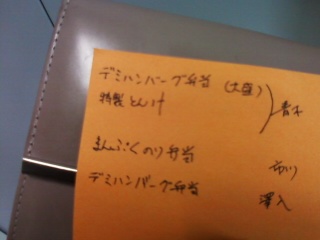 デミハンバーグ弁当 (大盛)
特製とん汁
青木
まんぷくのり弁当
市川
デミハンバーグ弁当
澤入